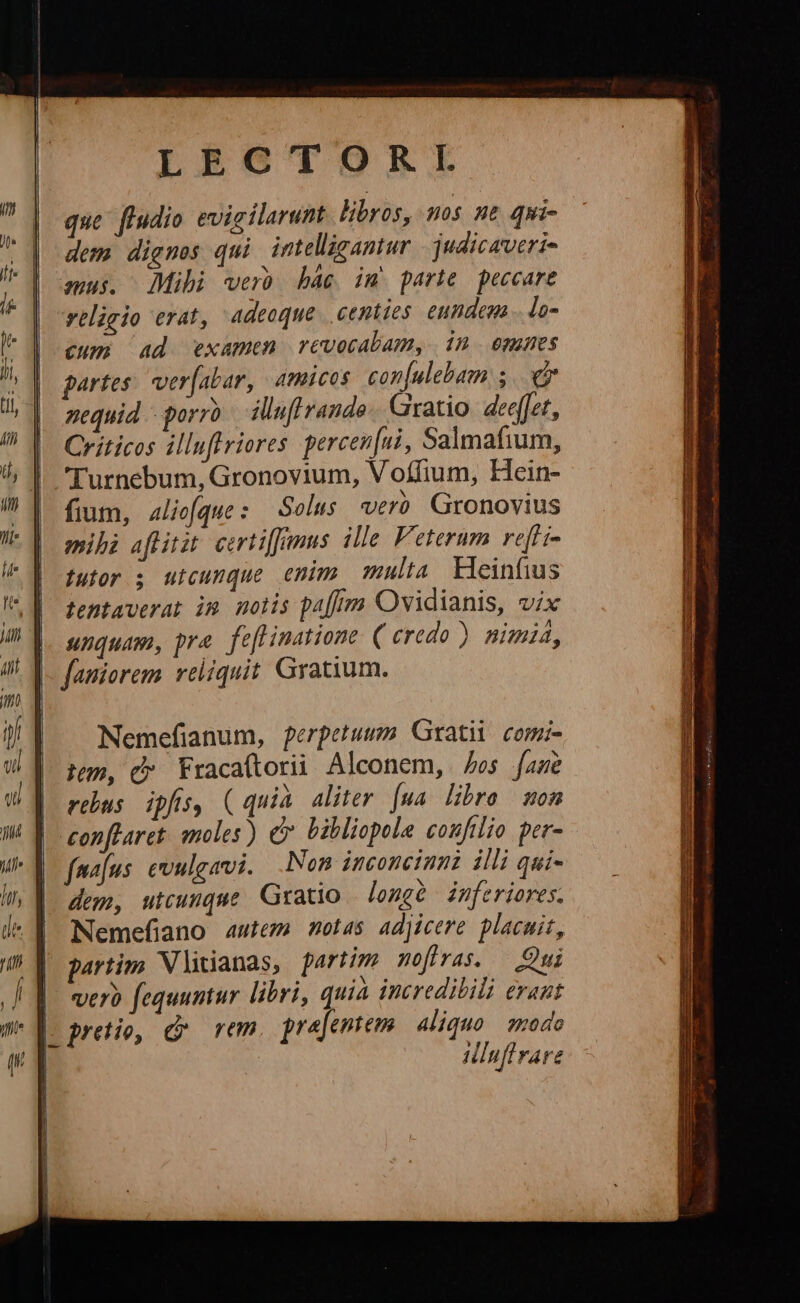 LECTORI.
que ſtudio evigilarunt libros, nos ne qui-
dem dignos qui intelligantur judicaveri-
mus. Mihi verò hâc in parte peccare
religio erat, adeoque centies eundem lo-
cum ad examen revocabam, in omnes
partes verſabar, amicos conſulebam; &
nequid porrò illuſtrando Gratio deeſſet,
Criticos illuſtriores percenſui, Salmaſium,
Turnebum, Gronovium, Voſſium, Hein-
ſium, alioſque: Solus verò Gronovius
mihi aſtitit certiſſimus ille Veterum reſti-
tutor; utcunque enim multa Heinſius
tentaverat in notis paſſim Ovidianis, vix
unquam, præ feſtinatione (credo) nimiâ,
ſaniorem reliquit Gratium.
Nemeſianum, perpetuum Gratii comi-
tem, & Fracaſtorii Alconem, hos ſanè
rebus ipſis, (quià aliter ſua libro non
conſtaret moles) & bibliopolæ conſilio per-
ſuaſus evulgavi. Non inconcinni illi qui-
dem, utcunque Gratio longè inferiores.
Nemeſiano autem notas adjicere placuit,
partim Vlitianas, partim noſtras. Qui
verò ſequuntur libri, quià incredibili erant
pretio, & rem præſentem aliquo modo
illuſtrare